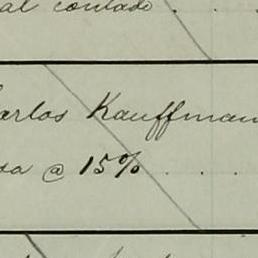 al contado . . .
arlos Kauffman
sa @ 15% . . .